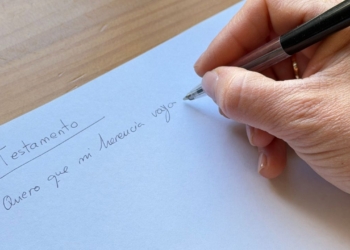 Testamento
Quiero que mi herencia vaya